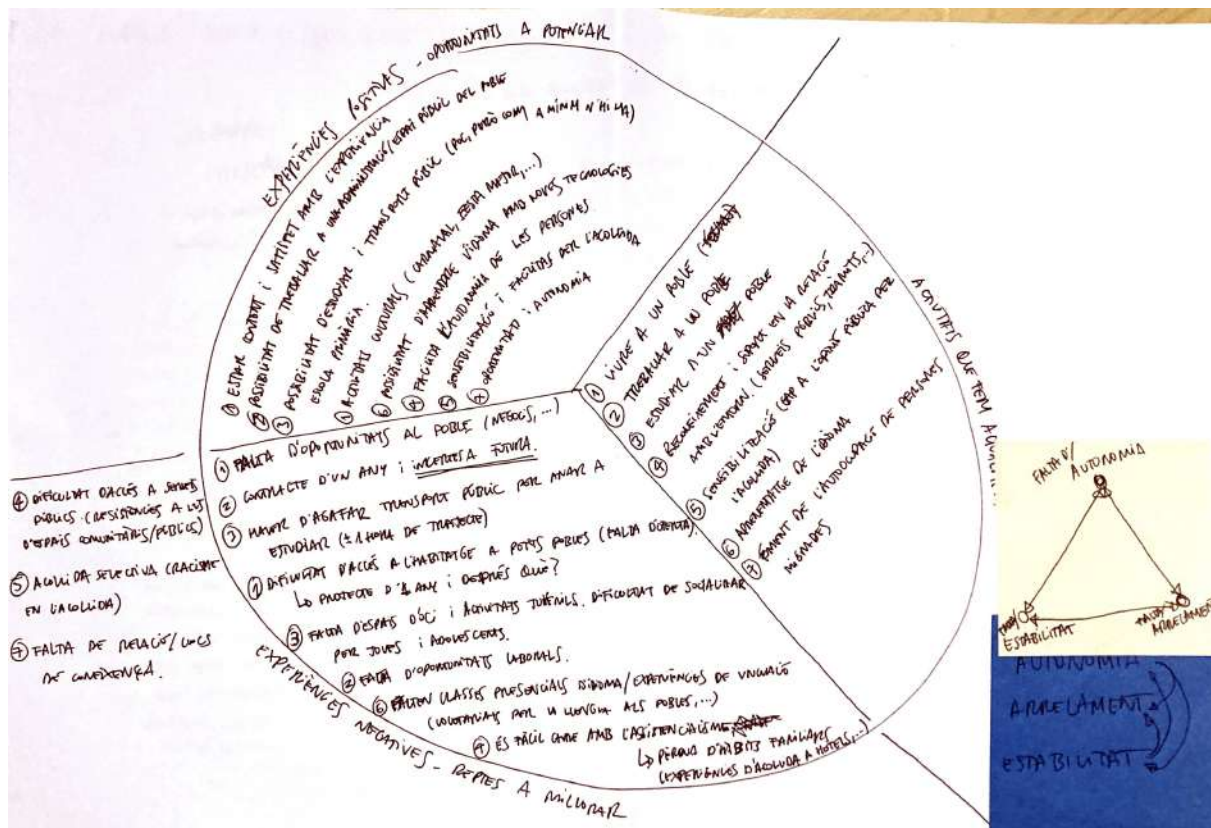 EXPERIÈNCIES POSITIVES - OPORTUNITATS A POTENCIAR
① ESTAR CONTENT I SATISFET AMB L'EXPERIÈNCIA
② POSSIBILITAT DE TREBALLAR A UNA ADMINISTRACIÓ/ESPAI PÚBLIC DEL POBLE
③ POSSIBILITAT D'ESTUDIAR I TRANSPORT PÚBLIC (POC, PERÒ COM A MÍNIM N'HI HA)
ESCOLA PRIMÀRIA.
① ACTIVITATS CULTURALS (CARNAVAL, FESTA MAJOR,...)
⑥ POSSIBILITAT D'APRENDRE L'IDIOMA AMB NOVES TECNOLOGIES
④ FACILITA L'AUTONOMIA DE LES PERSONES
⑤ SENSIBILITZACIÓ I FACILITAS PER L'ACOLLIDA
⑦ OPORTUNITAT I AUTONOMIA
ACTIVITATS QUE FEM
① VIURE A UN POBLE
② TREBALLAR A UN POBLE
③ ESTUDIAR A UN POBLE
④ RECONEIXEMENT I SUPORT EN LA RELACIÓ
AMB L'ENTORN. (SERVEIS PÚBLICS, TRÀMITS,...)
⑤ SENSIBILITZACIÓ (CAP A L'OPINIÓ PÚBLICA PER
L'ACOLLIDA)
⑥ APRENENTATGE DE L'IDIOMA
⑦ FOMENT DE L'AUTOOCUPACIÓ DE PERSONES
MIGRADES
① FALTA D'OPORTUNITATS AL POBLE (NEGOCIS,...)
② CONTRACTE D'UN ANY I INCERTESA FUTURA.
③ HAVER D'AGAFAR TRANSPORT PÚBLIC PER ANAR A
ESTUDIAR (± 1 HORA DE TRAJECTE)
① DIFICULTAT D'ACCÉS A L'HABITATGE A PETITS POBLES (FALTA D'OFERTA).
↳ PROJECTE D'1 ANY I DESPRÉS QUÈ?
③ FALTA D'ESPAIS D'OCI I ACTIVITATS JUVENILS. DIFICULTAT DE SOCIALITZAR
PER JOVES I ADOLESCENTS.
② FALTA D'OPORTUNITATS LABORALS.
⑥ FALTEN CLASSES PRESENCIALS IDIOMA/EXPERIÈNCIES DE VINCULACIÓ
(VOLUNTARIATS PER LA LLENGUA ALS POBLES,...)
④ ÉS FÀCIL CAURE AMB L'ASSISTENCIALISME
↳ PÈRDUA D'HÀBITS FAMILIARS
(EXPERIÈNCIES D'ACOLLIDA A HOTELS,...)
EXPERIÈNCIES NEGATIVES - REPTES A MILLORAR
④ DIFICULTAT D'ACCÉS A SERVEIS
PÚBLICS. (RESISTÈNCIES A L'ÚS
D'ESPAIS COMUNITARIS/PÚBLICS)
⑤ ACOLLIDA SELECTIVA (RACISME
EN L'ACOLLIDA)
⑦ FALTA DE RELACIÓ/LLOCS
DE CONEIXENÇA.
FALTA D'/
AUTONOMIA
FALTA/
ESTABILITAT
FALTA D'/
ARRELAMENT
AUTONOMIA
ARRELAMENT
ESTABILITAT